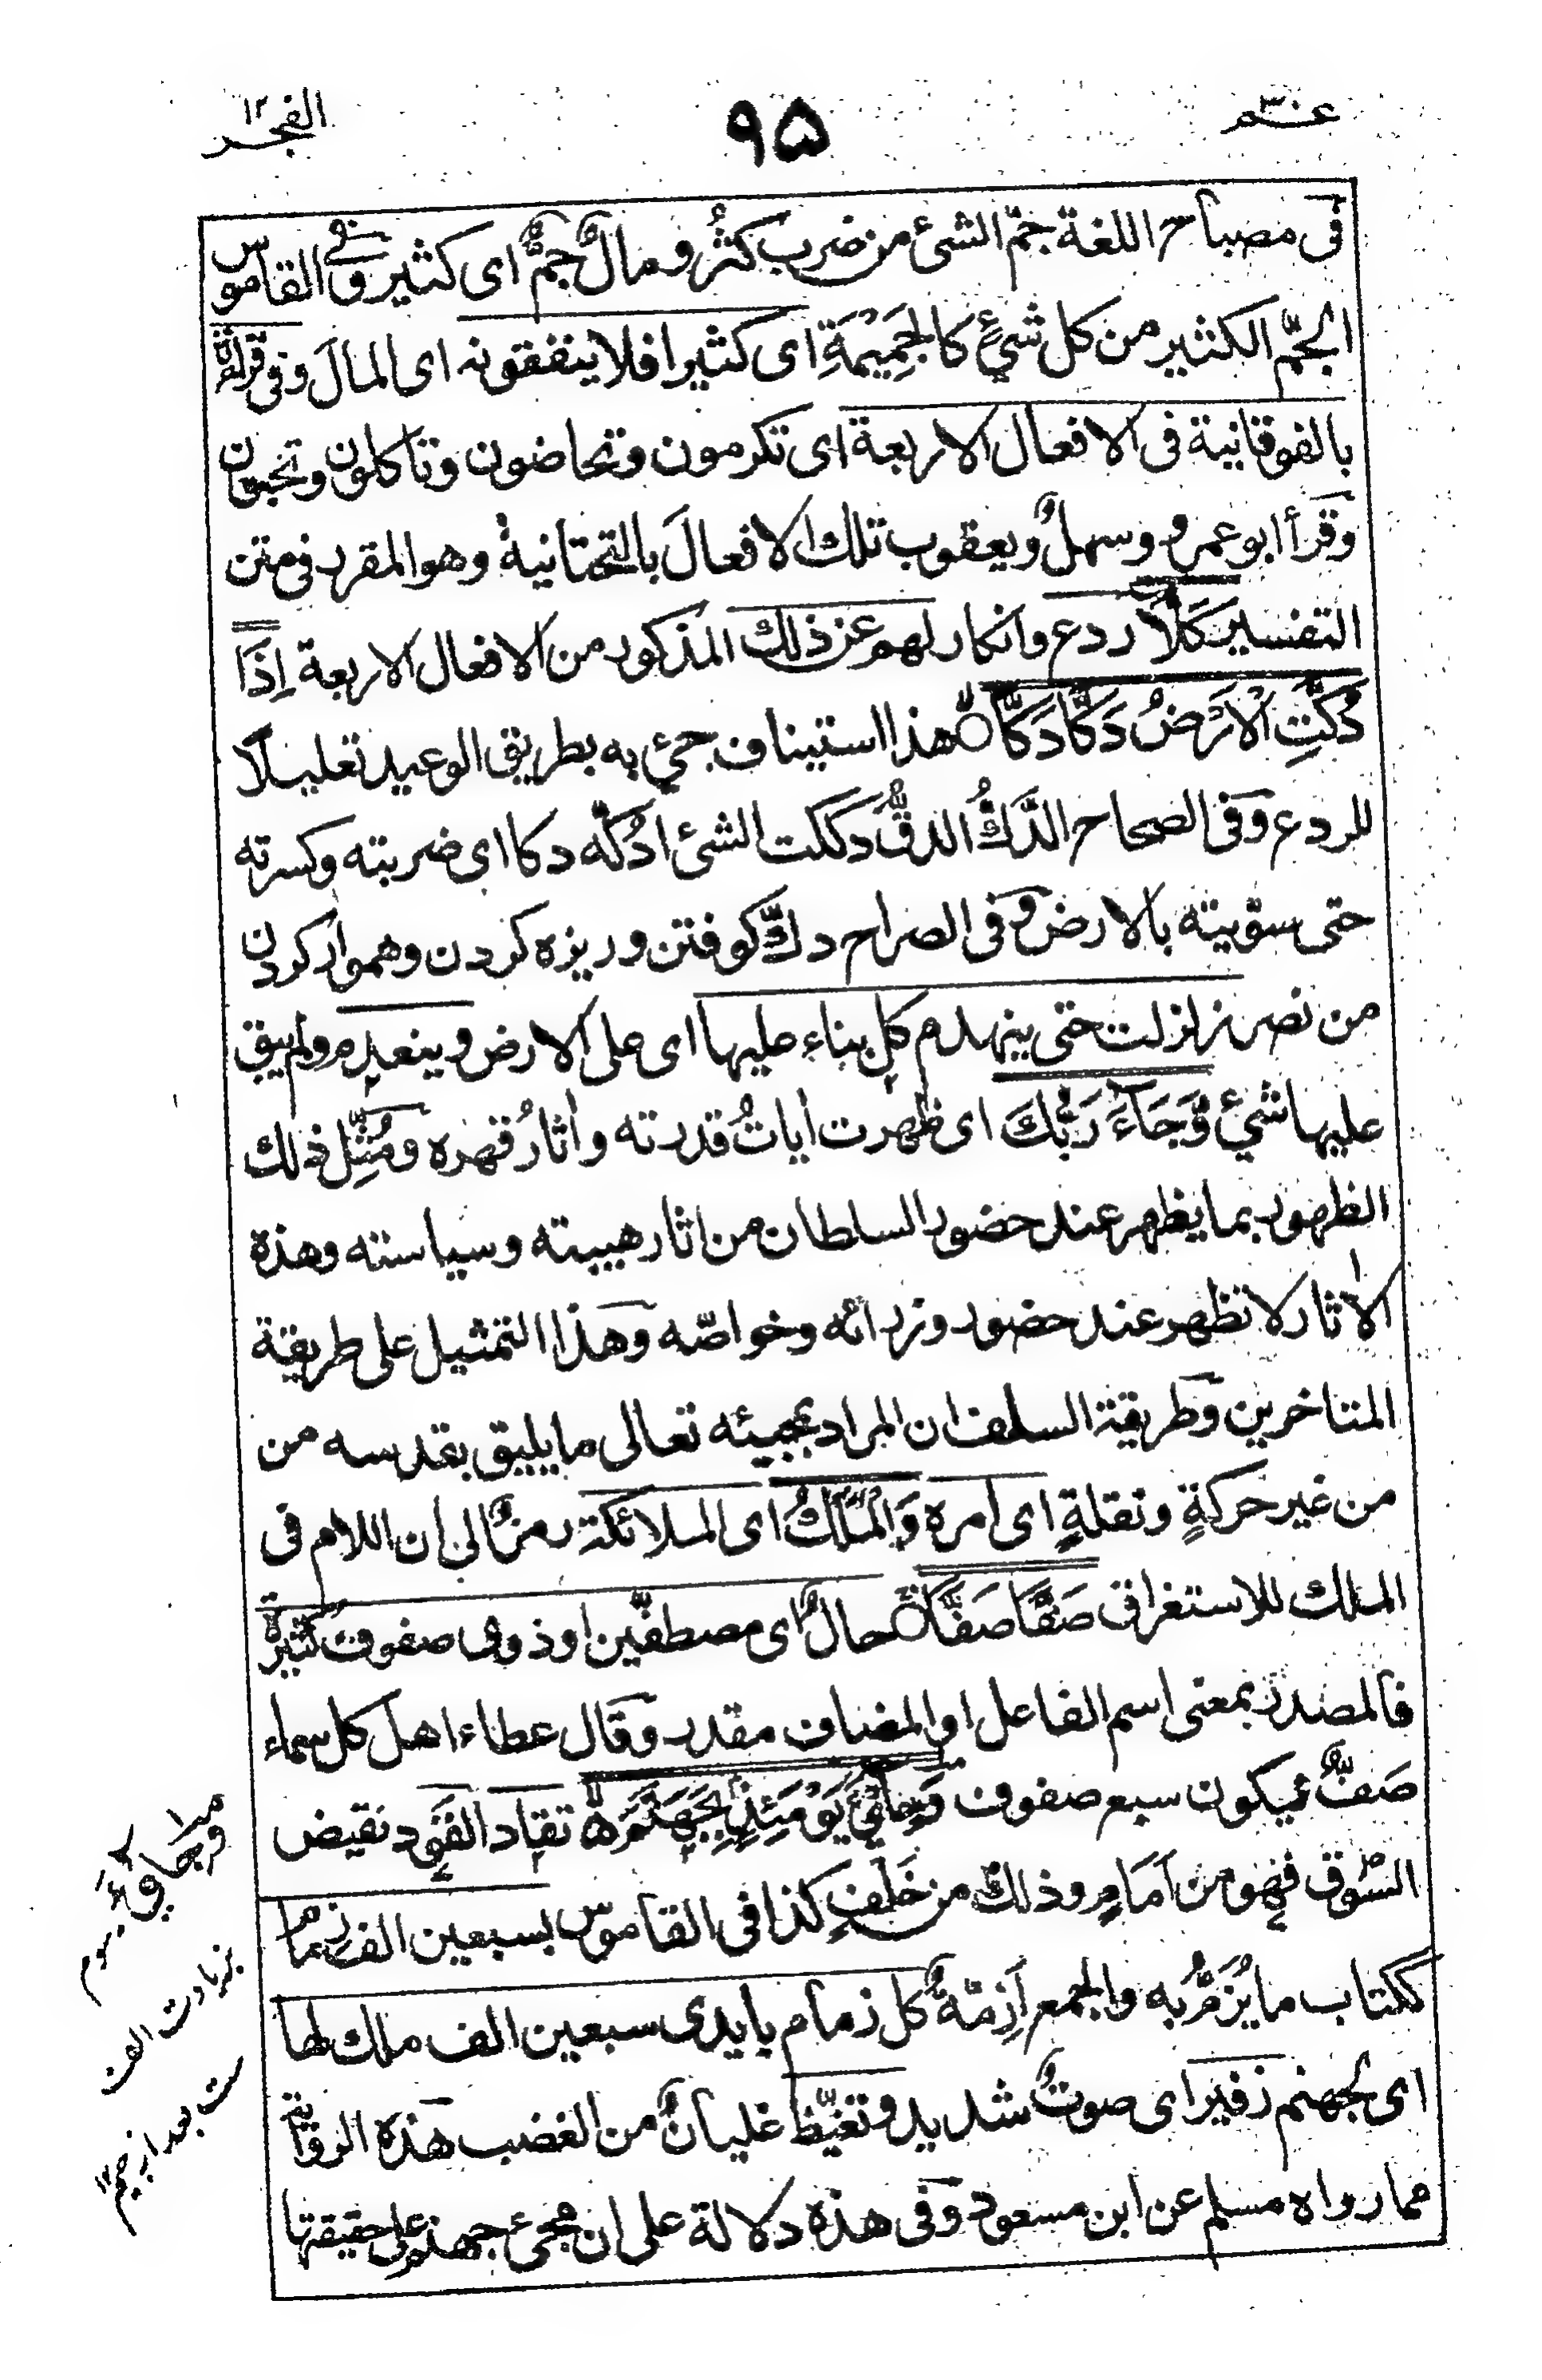 عم ٣٠
٩٥
الفجر ١٢
فى مصباح اللغة جمّ الشئ من ضرب كثُر و مالٌ جمٌّ اى كثير وفى القاموس
الجمّ الكثير من كل شئٍ كالجَمِيْمَةِ اى كثيرا فلا ينفقونه اى المالَ وفى قراءة
بالفوقانية فى الافعال الاربعة اى تكرمون وتحاضون وتاكلون وتحبون
وقرأ ابو عمرو وسهلٌ ويعقوب تلك الافعالَ بالتحتانية وهو المقرر فى متن
التفسير كَلَّا ردع وانكار لهم عن ذلك المذكور من الافعال الاربعة اِذَا
دُكَّتِ الْاَرْضُ دَكًّا دَكًّا هذا استيناف جئ به بطريق الوعيد تعليلا
للردع وفى الصحاح الدَّكُّ الدقُّ دككت الشئ ادُكّه دكا اى ضربته وكسرته
حتى سوّيته بالارض وفى الصراح دكٌّ كوفتن وريزه كردن وهموار كردن
من نصر زلزلت حتى ينهدم كل بناء عليها اى على الارض وينعدم ولم يبق
عليها شئ وَّجَآءَ رَبُّكَ اى ظهرت اياتُ قدرته واثارُ قهره ومُثِّل ذلك
الظهور بما يظهر عند حضور السلطان من اثار هيبته وسياسته وهذه
الاثار لا تظهر عند حضور وزرائه وخواصّه وهذا التمثيل على طريقة
المتاخرين وطريقة السلف ان المراد بمجيئه تعالى ما يليق بقدسه من
من غير حركةٍ ونقلةٍ اى امره وَالْمَلَكُ اى الملائكة رمزٌ الى ان اللام فى
الملك للاستغراق صَفًّا صَفًّا حالٌ اى مصطفّين او ذوى صفوف كثيرة
فالمصدر بمعنى اسم الفاعل او المضاف مقدر وقال عطاء اهل كل سماء
صَفٌّ فيكون سبع صفوف وَجِائْءَ يَوْمَئِذٍ بِجَهَنَّمَ تقاد القَوَد نقيض
السوق فهو من اَمَامٍ وذلك من خَلْفٍ كذا فى القاموس بسبعين الف زمام
ككتاب ما يُزَمُّ به والجمع اَزِمّةٌ كل زمام بايدى سبعين الف ملك لها
اى لجهنم زفير اى صوتٌ شديد وتغيّظ غليانٌ من الغضب هذه الرواية
مما رواه مسلم عن ابن مسعود وفى هذه دلالة على ان مجئ جهنم على حقيقتها
بزيادت الف
ست بعد از جيم ١٢